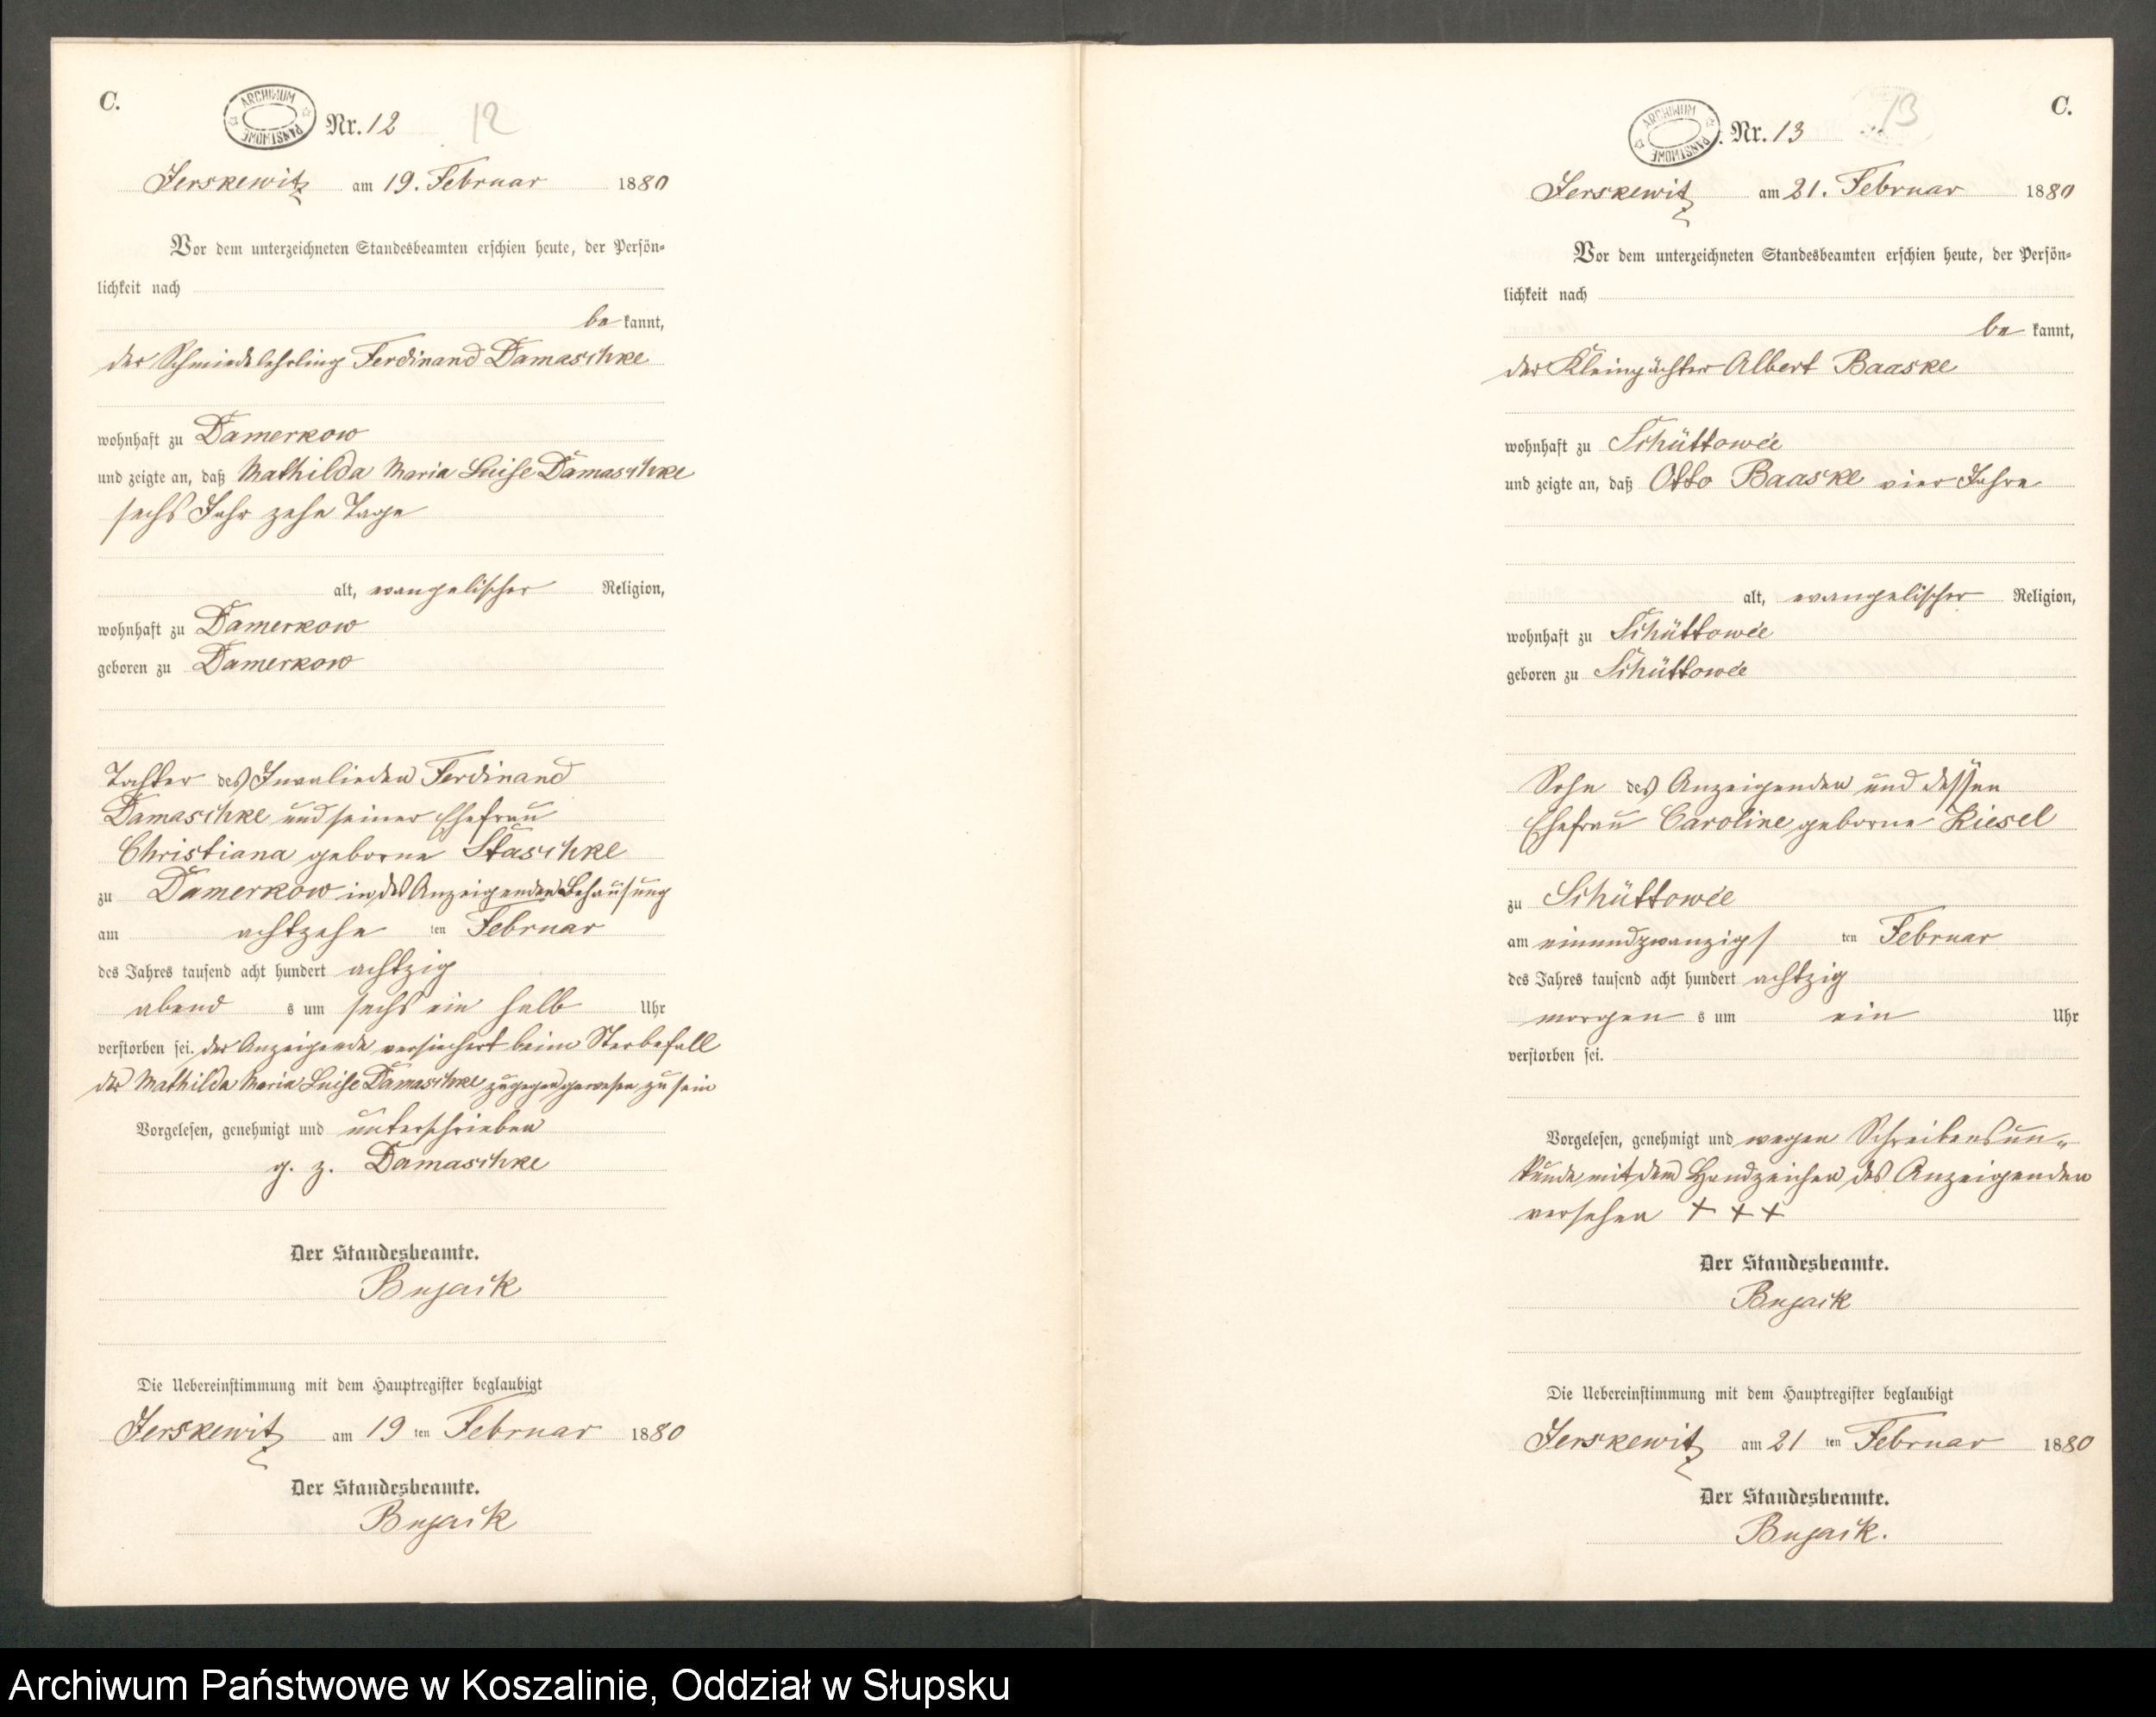 C.
ARCHIWUM PAŃSTWOWE
Nr. 12
12
Jerskewitz am 19. Februar 1880
Vor dem unterzeichneten Standesbeamten erschien heute, der Persön-
lichkeit nach
be kannt,
der Schmiedelehrling Ferdinand Damaschke
wohnhaft zu Damerkow
und zeigte an, daß Mathilda Maria Luise Damaschke
sechs Jahr zehn Tage
alt, evangelischer Religion,
wohnhaft zu Damerkow
geboren zu Damerkow
Tochter des Invalieden Ferdinand
Damaschke und seiner Ehefrau
Christiana geborne Staschke
zu Damerkow in des Anzeigenden Behausung
am achtzehn ten Februar
des Jahres tausend acht hundert achtzig
abend s um sechs ein halb Uhr
verstorben sei. der Anzeigende versichert beim Sterbefall
der Mathilda Maria Luise Damaschke zugegen gewesen zu sein
Vorgelesen, genehmigt und unterschrieben
g. z. Damaschke
Der Standesbeamte.
Bujack
Die Uebereinstimmung mit dem Hauptregister beglaubigt
Jerskewitz am 19 ten Februar 1880
Der Standesbeamte.
Bujack
C.
ARCHIWUM PAŃSTWOWE
Nr. 13
13
Jerskewitz am 21. Februar 1880
Vor dem unterzeichneten Standesbeamten erschien heute, der Persön-
lichkeit nach
be kannt,
der Kleinpächter Albert Baaske
wohnhaft zu Schüttowée
und zeigte an, daß Otto Baaske vier Jahre
alt, evangelischer Religion,
wohnhaft zu Schüttowée
geboren zu Schüttowée
Sohn des Anzeigenden und dessen
Ehefrau Caroline geborne Kiesel
zu Schüttowée
am einundzwanzigs ten Februar
des Jahres tausend acht hundert achtzig
morgen s um ein Uhr
verstorben sei.
Vorgelesen, genehmigt und wegen Schreibensun-
kunde mit dem Handzeichen des Anzeigenden
versehen + + +
Der Standesbeamte.
Bujack
Die Uebereinstimmung mit dem Hauptregister beglaubigt
Jerskewitz am 21 ten Februar 1880
Der Standesbeamte.
Bujack.
Archiwum Państwowe w Koszalinie, Oddział w Słupsku